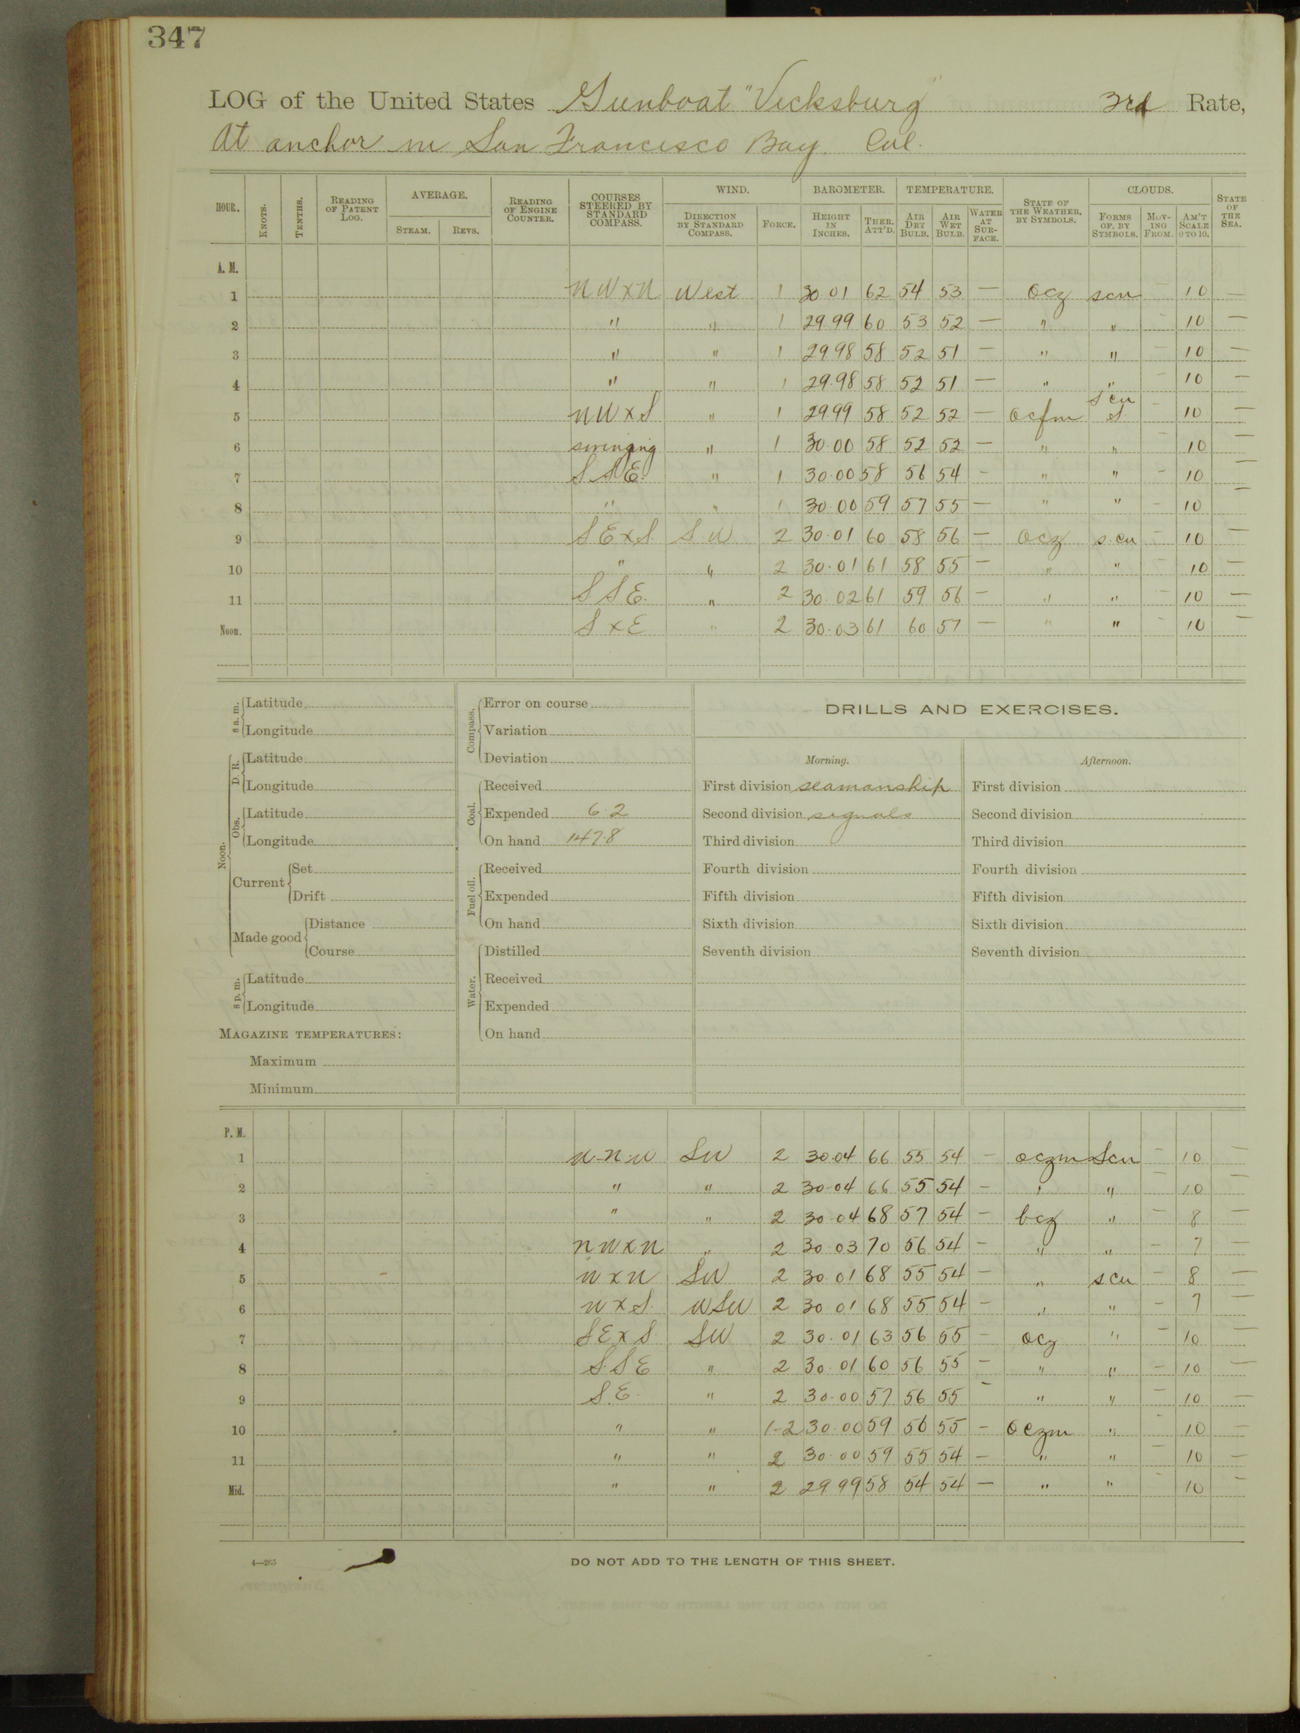 347
LOG of the United States Gunboat "Vicksburg" 3rd Rate,
At anchor in San Francisco Bay. Cal.
HOUR. KNOTS. TENTHS. READING OF PATENT LOG. AVERAGE. STEAM. REVS. READING OF ENGINE COUNTER. COURSES STEERED BY STANDARD COMPASS. WIND. DIRECTION BY STANDARD COMPASS. FORCE. BAROMETER. HEIGHT IN INCHES. THER. ATT'D. TEMPERATURE. AIR DRY BULB. AIR WET BULB. WATER AT SURFACE. STATE OF THE WEATHER, BY SYMBOLS. CLOUDS. FORMS OF, BY SYMBOLS. MOVING FROM. AM'T SCALE 0 TO 10. STATE OF THE SEA.
A. M.
1 NWxN West 1 30 01 62 54 53 — ocz scu — 10 —
2 " " 1 29.99 60 53 52 — " " — 10 —
3 " " 1 29.98 58 52 51 — " " — 10 —
4 " " 1 29.98 58 52 51 — " " — 10 —
5 NWxS " 1 29.99 58 52 52 — ocfm scu s — 10 —
6 swinging " 1 30.00 58 52 52 — " " — 10 —
7 SSE " 1 30.00 58 56 54 — " " — 10 —
8 " " 1 30.00 59 57 55 — " " — 10 —
9 SExS SW 2 30.01 60 58 56 — ocz s.cu — 10 —
10 " " 2 30.01 61 58 55 — " " — 10 —
11 SSE. " 2 30.02 61 59 56 — " " — 10 —
Noon. SxE " 2 30.03 61 60 57 — " " — 10 —
8 a. m. Latitude
Longitude
Noon. D. R. Latitude
Longitude
Obs. Latitude
Longitude
Current Set
Drift
Made good Distance
Course
8 p. m. Latitude
Longitude
MAGAZINE TEMPERATURES:
Maximum
Minimum
Compass. Error on course
Variation
Deviation
Coal. Received
Expended 6.2
On hand 147.8
Fuel oil. Received
Expended
On hand
Water. Distilled
Received
Expended
On hand
DRILLS AND EXERCISES.
Morning. Afternoon.
First division seamanship First division
Second division signals Second division
Third division Third division
Fourth division Fourth division
Fifth division Fifth division
Sixth division Sixth division
Seventh division Seventh division
P. M.
1 N-N-W SW 2 30.04 66 55 54 — oczm Scu — 10 —
2 " " 2 30.04 66 55 54 — " " — 10 —
3 " " 2 30.04 68 57 54 — bcz " — 8 —
4 NWxN " 2 30 03 70 56 54 — " " — 7 —
5 NxW SW 2 30 01 68 55 54 — " scu — 8 —
6 WxS. WSW 2 30 01 68 55 54 — " " — 7 —
7 SExS SW 2 30.01 63 56 55 — ocz " — 10 —
8 S.SE " 2 30.01 60 56 55 — " " — 10 —
9 S.E. " 2 30.00 57 56 55 — " " — 10 —
10 " " 1-2 30.00 59 56 55 — oczm " — 10 —
11 " " 2 30.00 59 55 54 — " " — 10 —
Mid. " " 2 29 99 58 54 54 — " " — 10 —
4—265
DO NOT ADD TO THE LENGTH OF THIS SHEET.